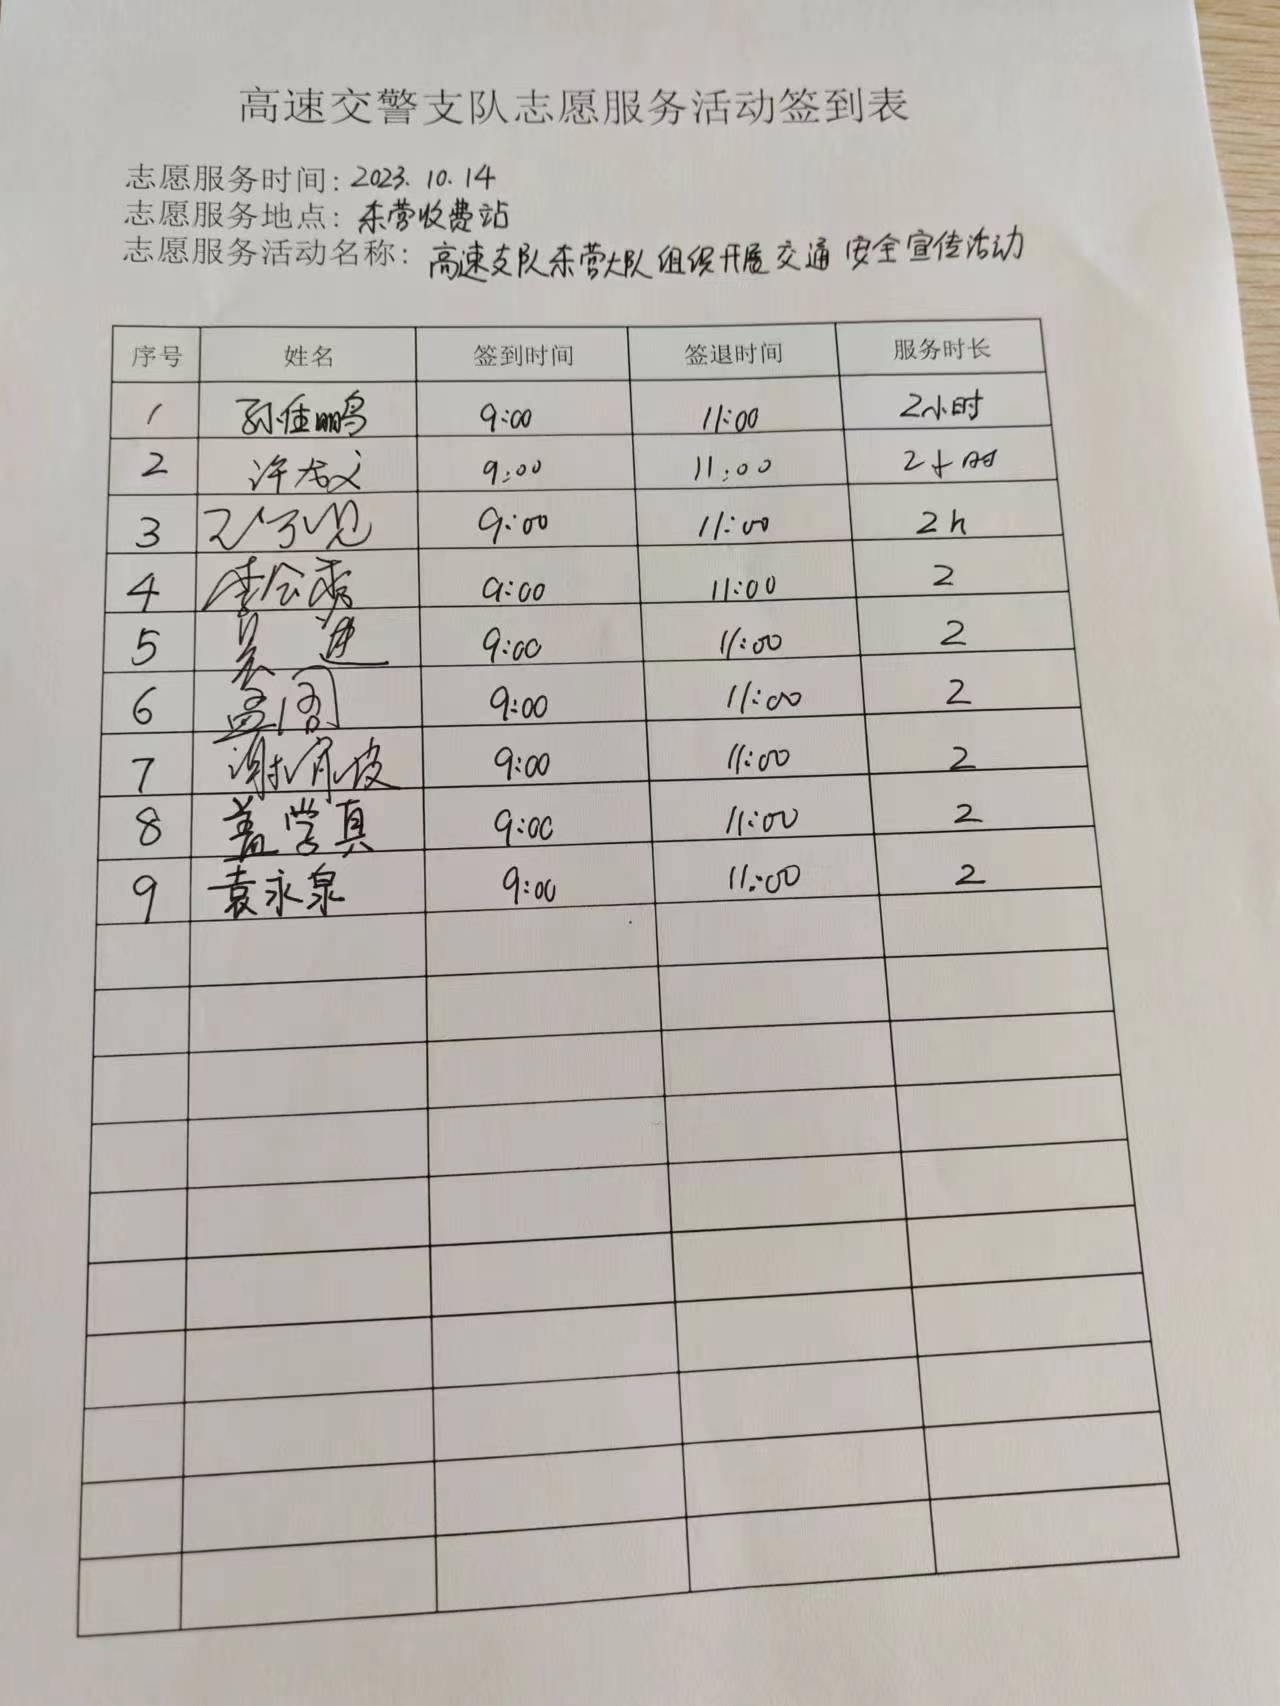 高速交警支队志愿服务活动签到表
志愿服务时间：2023.10.14
志愿服务地点：东营收费站
志愿服务活动名称：高速支队东营大队组织开展交通安全宣传活动
序号 姓名 签到时间 签退时间 服务时长
1 孙佳鹏 9:00 11:00 2小时
2 许 文 9:00 11:00 2小时
3 9:00 11:00 2h
4 李会秀 9:00 11:00 2
5 吴 9:00 11:00 2
6 孟 9:00 11:00 2
7 谢 9:00 11:00 2
8 盖学真 9:00 11:00 2
9 袁永泉 9:00 11:00 2